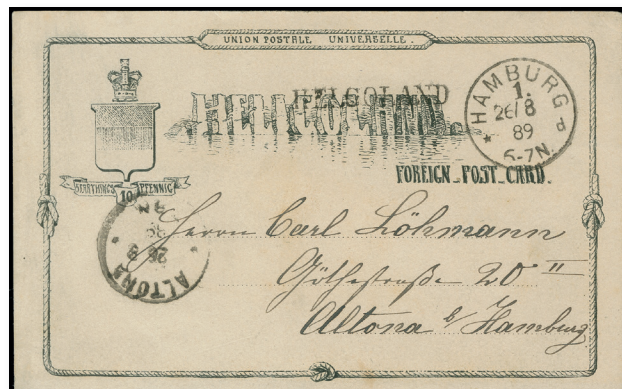 UNION POSTALE UNIVERSELLE.
HELIGOLAND
HELGOLAND
HAMBURG
1.
26/8
89
6-7N.
FOREIGN POST CARD.
FARTHINGS 10 PFENNIG
ALTONA
26 8
89
Herrn Carl Löhmann
Göthestraße 20 II
Altona b/Hamburg